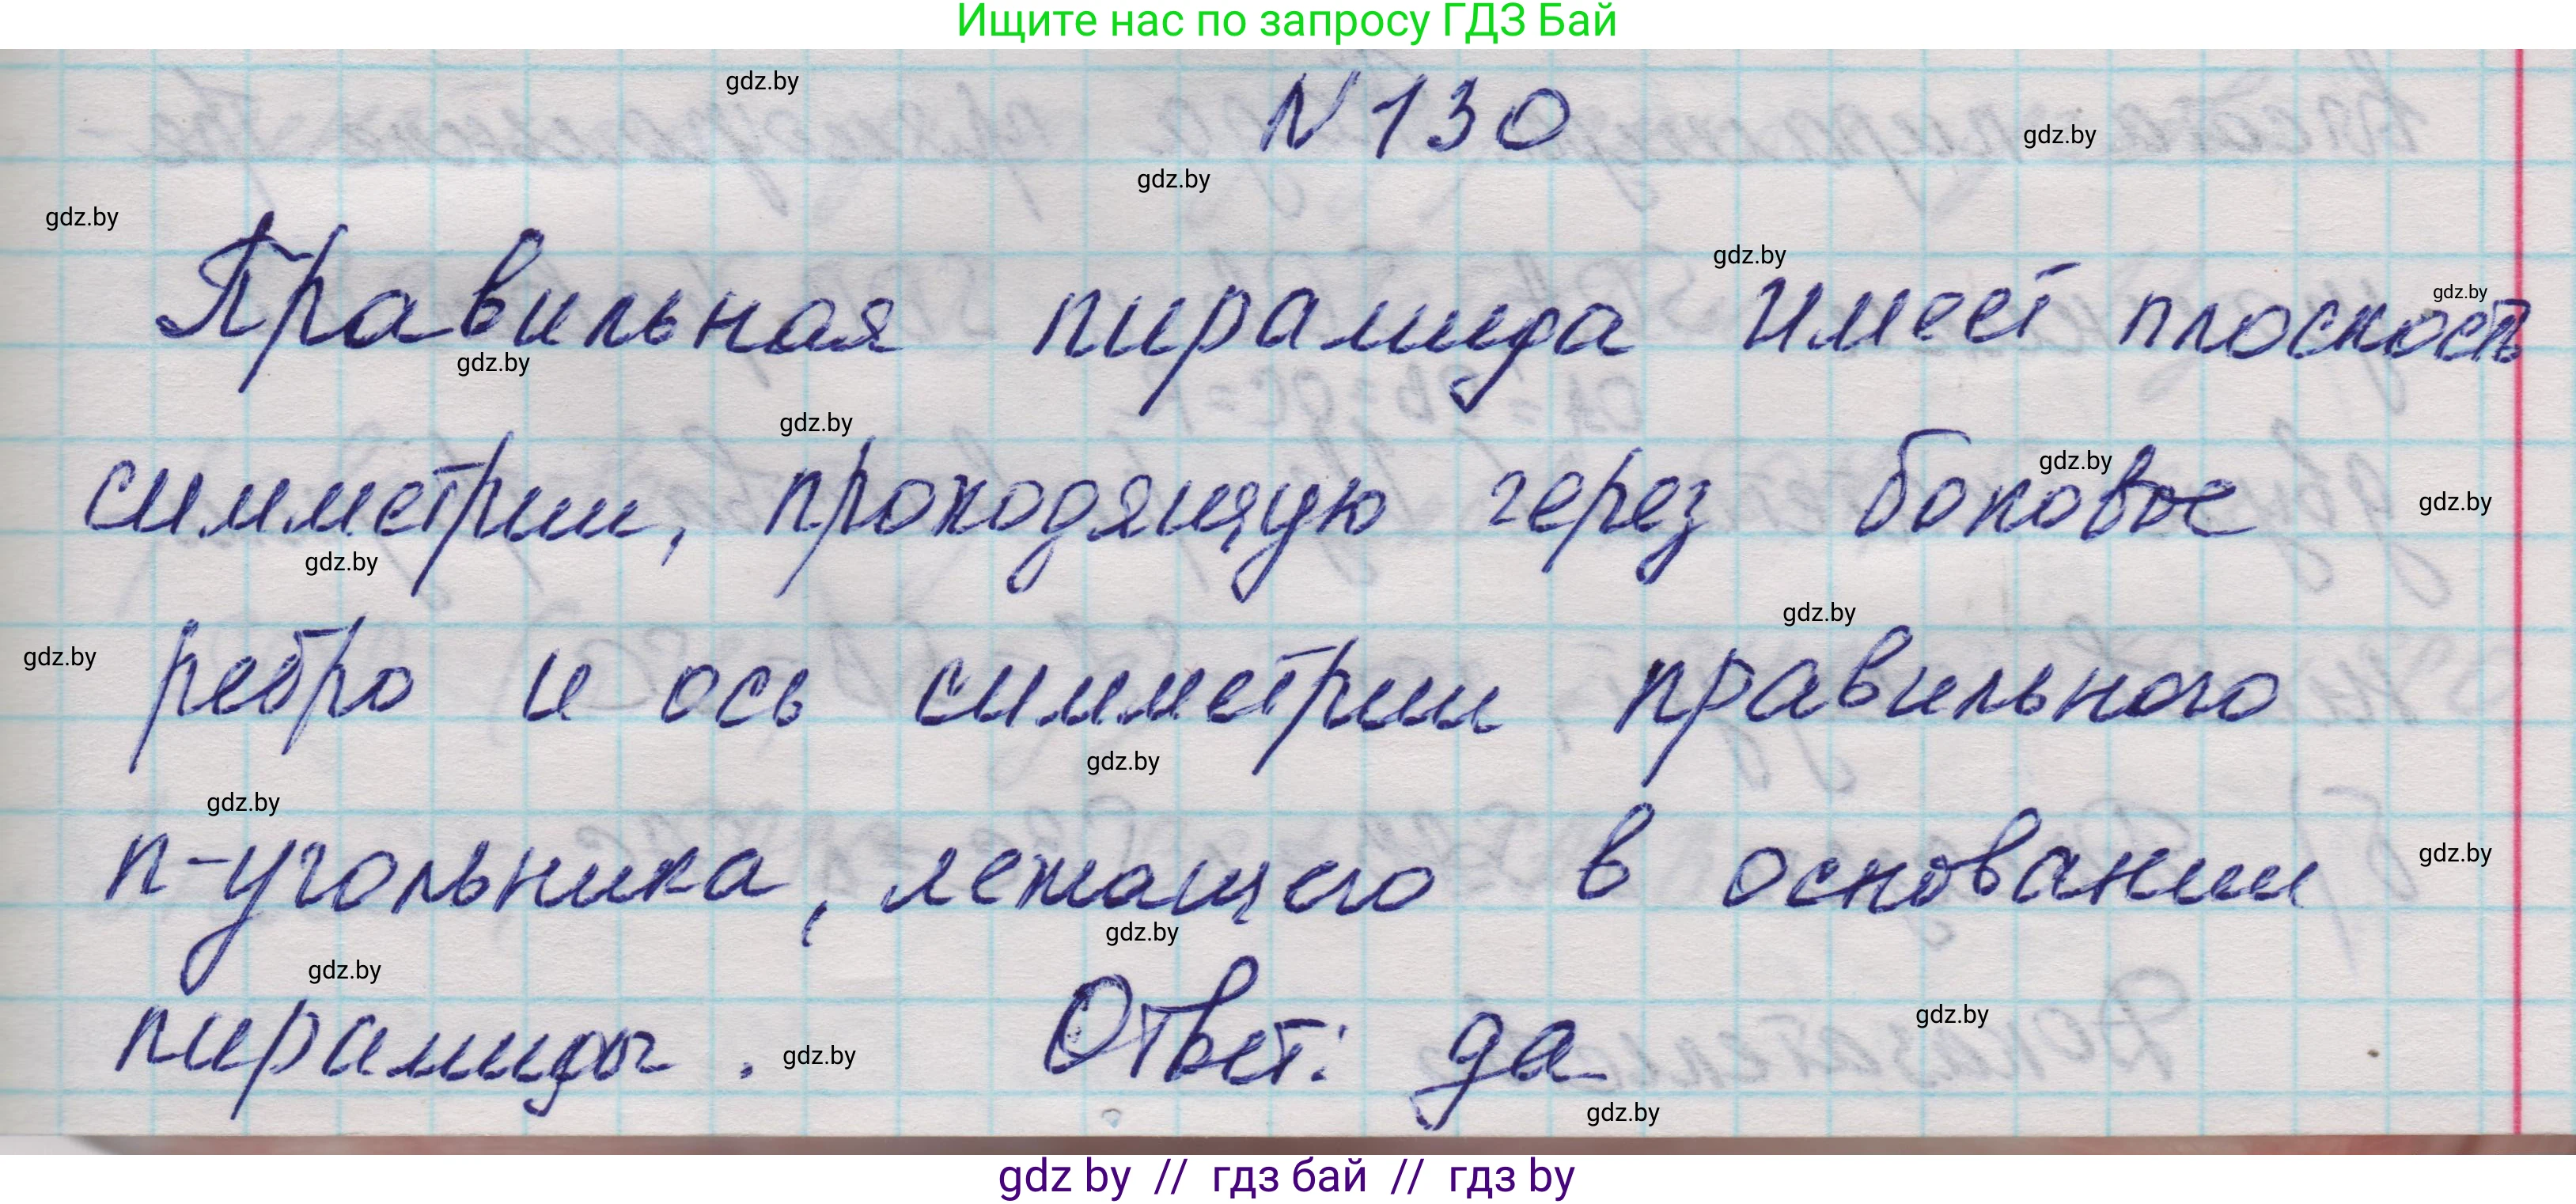 Ищите нас по запросу ГДЗ Бай
gdz.by
N 130
gdz.by
gdz.by
gdz.by
gdz.by
gdz.by
Правильная пирамида имеет плоскость
gdz.by
gdz.by
gdz.by
gdz.by
симметрии, проходящую через боковое
gdz.by
gdz.by
gdz.by
ребро и ось симметрии правильного
gdz.by
gdz.by
n-угольника, лежащего в основании
gdz.by
gdz.by
gdz.by
gdz.by
пирамиды. Ответ: да
gdz.by
gdz.by
gdz by // гдз бай // гдз by